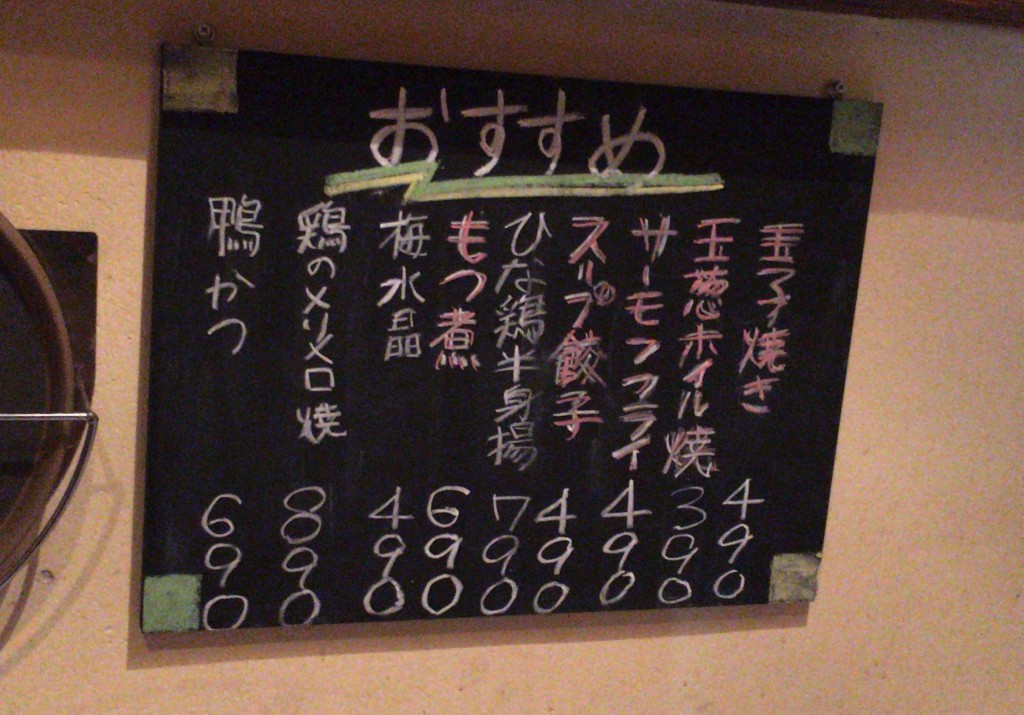 おすすめ
玉子焼き 490
玉葱ホイル焼 390
サーモフフライ 490
スープ餃子 490
ひな鶏半身揚 790
もつ煮 690
梅水晶 490
鶏のメリメロ焼 890
鴨かつ 690